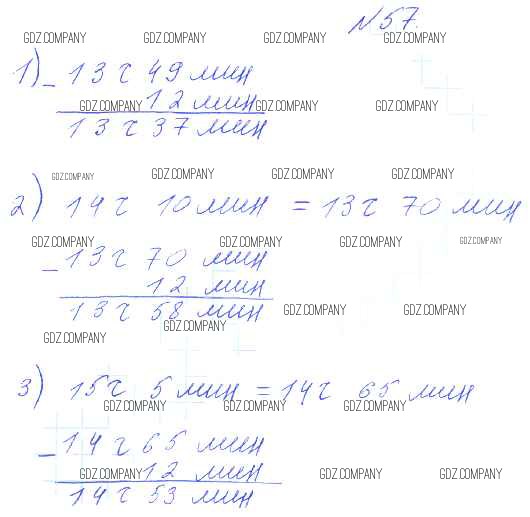 №57.
GDZ.COMPANY GDZ.COMPANY GDZ.COMPANY GDZ.COMPANY
1) - 13 ч 49 мин
12 мин
GDZ.COMPANY GDZ.COMPANY GDZ.COMPANY
13 ч 37 мин
GDZ.COMPANY GDZ.COMPANY GDZ.COMPANY GDZ.COMPANY
2) 14 ч 10 мин = 13 ч 70 мин
GDZ.COMPANY GDZ.COMPANY GDZ.COMPANY GDZ.COMPANY
- 13 ч 70 мин
12 мин
13 ч 58 мин
GDZ.COMPANY GDZ.COMPANY
GDZ.COMPANY
GDZ.COMPANY
3) 15 ч 5 мин = 14 ч 65 мин
GDZ.COMPANY GDZ.COMPANY GDZ.COMPANY
- 14 ч 65 мин
12 мин
GDZ.COMPANY GDZ.COMPANY GDZ.COMPANY
14 ч 53 мин